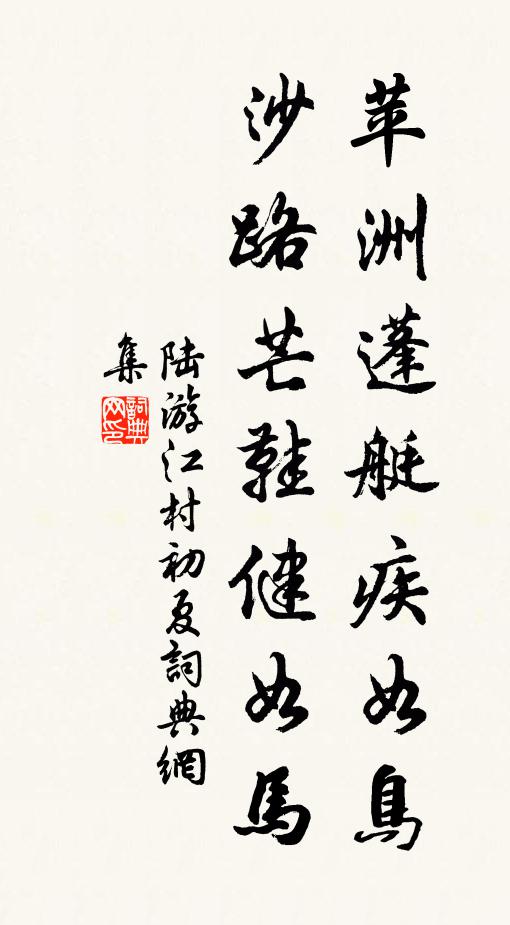 苹洲蓬艇疾如鳥
沙路芒鞋健如馬
陸游江村初夏詞典網
集
詞典网印